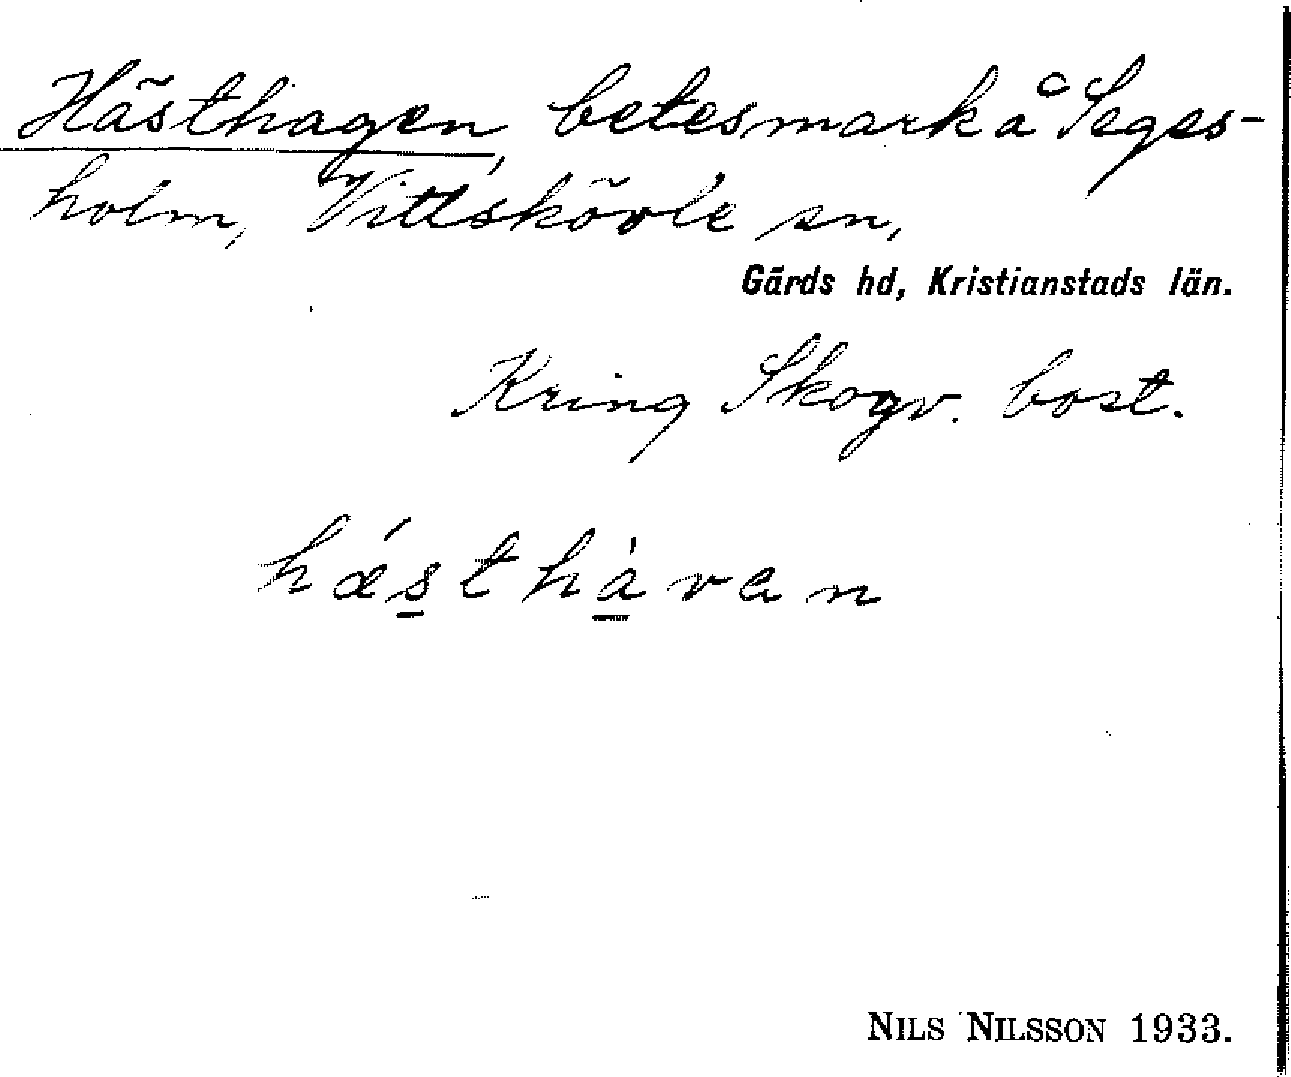 Hästhagen, betesmark å Seges-
holm, Vittskövle sn,
Gärds hd, Kristianstads län.
Kring Skogv. bost.
hǽsthàvan
NILS NILSSON 1933.